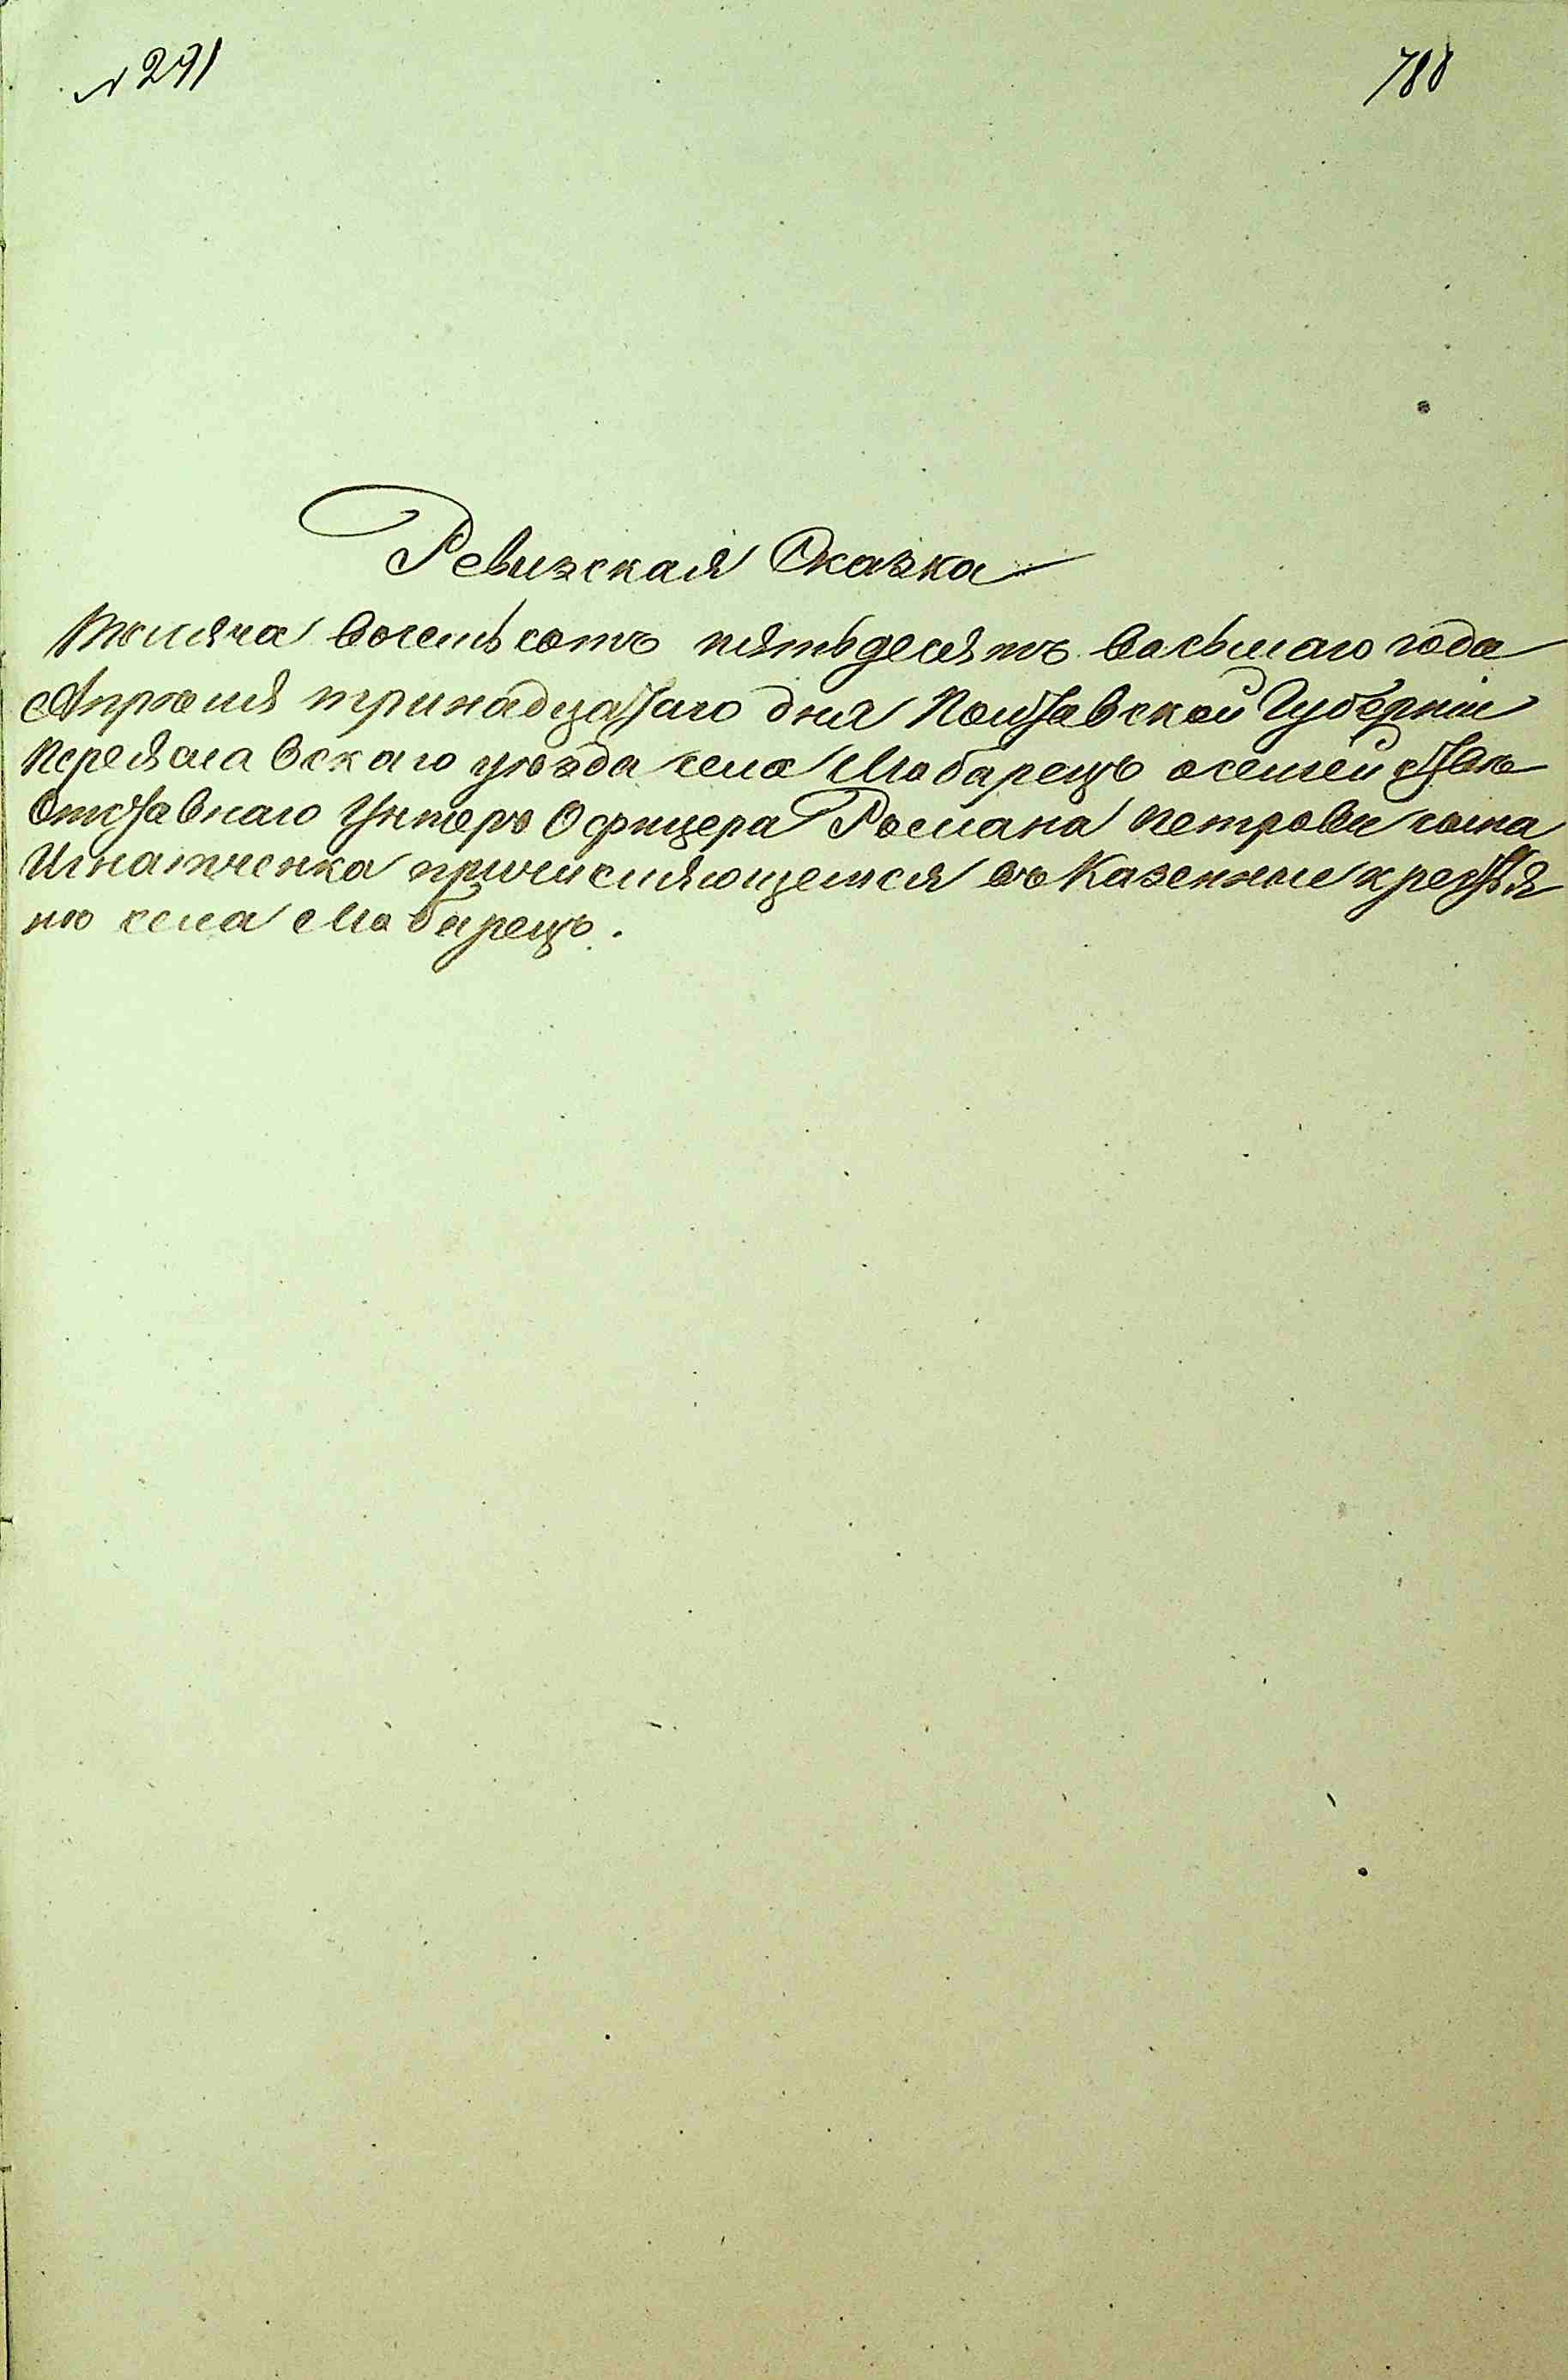 № 291
788
Ревизская Сказка
Тысяча восемьсотъ пятьдесятъ восьмаго года
Апреля тринадцатаго дня Полтавской Губерніи
Переяславскаго уѣзда села Мабарецъ о семействѣ
Отставнаго Унтеръ Офицера Романа Петрова сына
Игнатченка причисляющемся въ Казенные крестья
не села Мабарецъ.